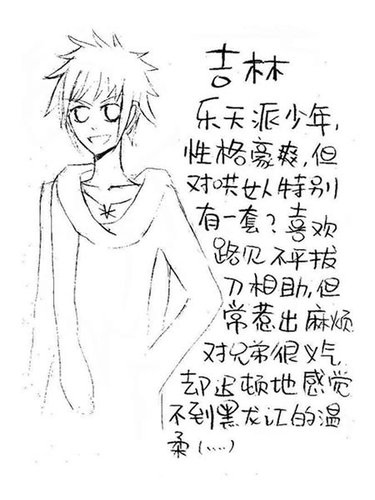 吉林
乐天派少年,
性格豪爽,但
对哄女人特别
有一套?喜欢
路见不平拔
刀相助,但
常惹出麻烦
对兄弟很义气
却迟顿地感觉
不到黑龙江的温
柔(.....)